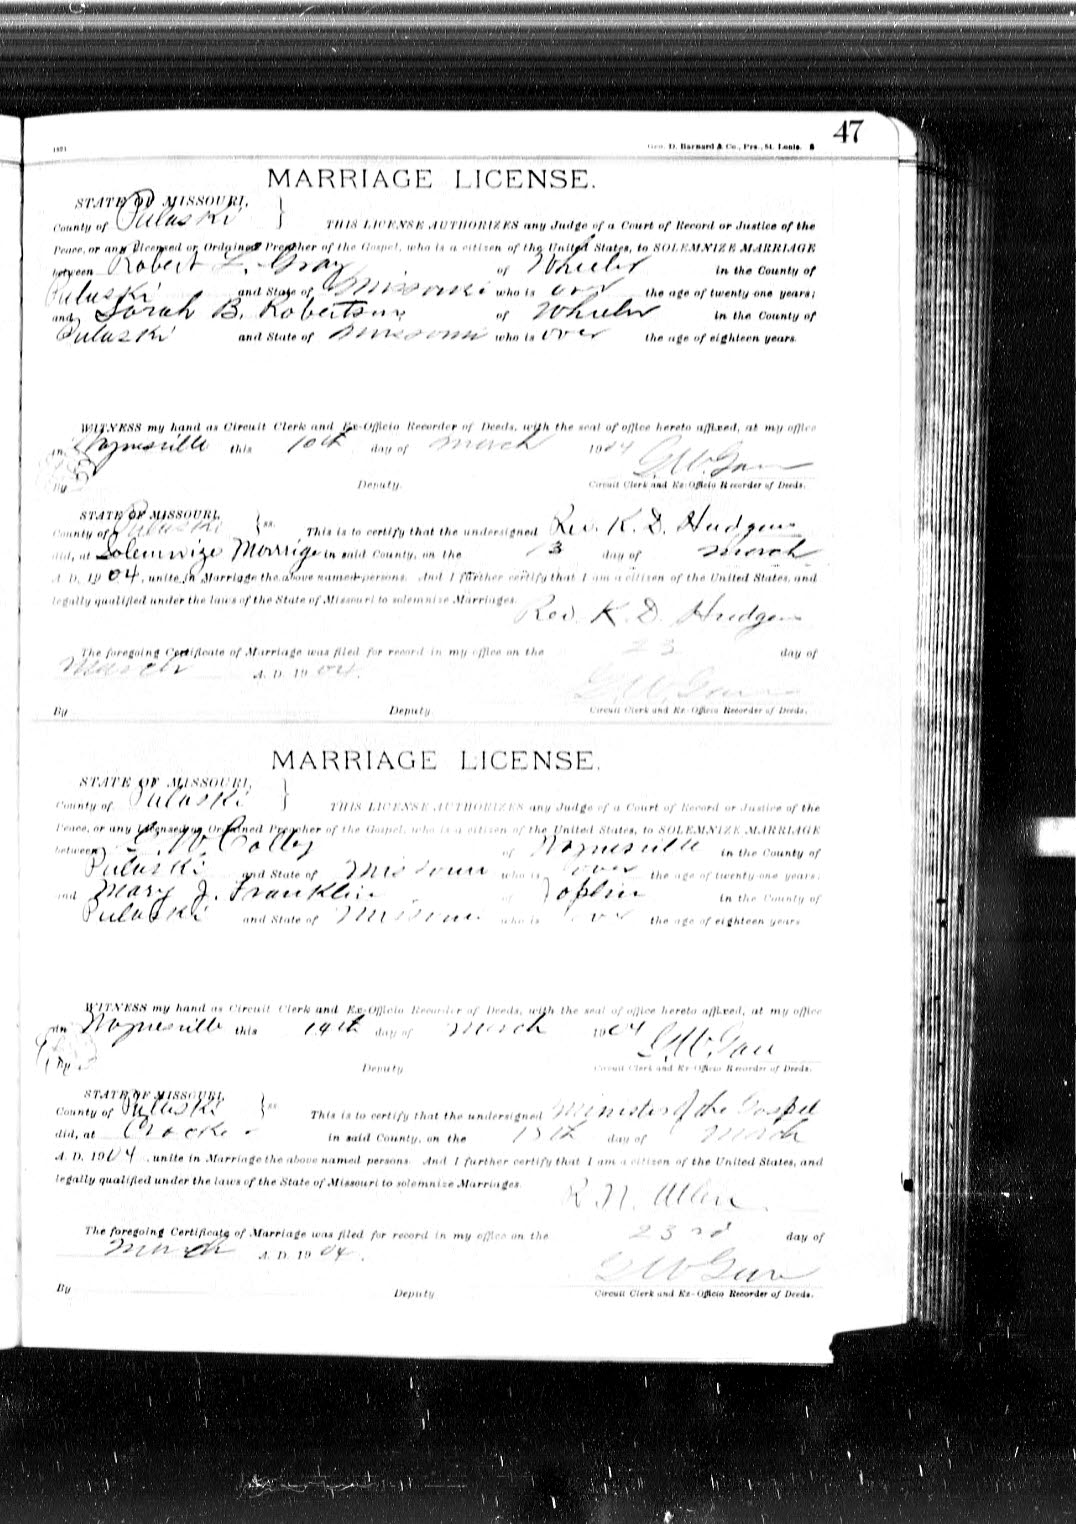 47
1871
Geo. D. Barnard & Co., Prs., St. Louis.
MARRIAGE LICENSE.
STATE OF MISSOURI,
County of Pulaski
THIS LICENSE AUTHORIZES any Judge of a Court of Record or Justice of the
Peace, or any Licensed or Ordained Preacher of the Gospel, who is a citizen of the United States, to SOLEMNIZE MARRIAGE
between Robert L. Gray of Wheeler in the County of
Pulaski and State of Missouri who is over the age of twenty-one years;
and Sarah B. Robertson of Wheeler in the County of
Pulaski and State of Missouri who is over the age of eighteen years.
WITNESS my hand as Circuit Clerk and Ex-Officio Recorder of Deeds, with the seal of office hereto affixed, at my office
in Waynesville this 10th day of March 1904
By Deputy. Circuit Clerk and Ex-Officio Recorder of Deeds.
STATE OF MISSOURI,
County of Pulaski ss. This is to certify that the undersigned Rev. K. D. Hudgens
did, at Solemnize Marrige in said County, on the 13 day of March
A. D. 1904, unite in Marriage the above named persons. And I further certify that I am a citizen of the United States, and
legally qualified under the laws of the State of Missouri to solemnize Marriages.
Rev. K. D. Hudgens
The foregoing Certificate of Marriage was filed for record in my office on the 23 day of
March A. D. 1904.
By Deputy Circuit Clerk and Ex-Officio Recorder of Deeds.
MARRIAGE LICENSE.
STATE OF MISSOURI,
County of Pulaski
THIS LICENSE AUTHORIZES any Judge of a Court of Record or Justice of the
Peace, or any Licensed or Ordained Preacher of the Gospel, who is a citizen of the United States, to SOLEMNIZE MARRIAGE
between W. Colley of Waynesville in the County of
Pulaski and State of Missouri who is over the age of twenty-one years;
and Mary J. Franklin of Joplin in the County of
Pulaski and State of Missouri who is over the age of eighteen years
WITNESS my hand as Circuit Clerk and Ex-Officio Recorder of Deeds, with the seal of office hereto affixed, at my office
in Waynesville this 14th day of March 1904
By Deputy Circuit Clerk and Ex-Officio Recorder of Deeds.
STATE OF MISSOURI,
County of Pulaski ss. This is to certify that the undersigned Minister of the Gospel
did, at Crocker in said County, on the 15th day of March
A. D. 1904, unite in Marriage the above named persons. And I further certify that I am a citizen of the United States, and
legally qualified under the laws of the State of Missouri to solemnize Marriages.
R. N. Allen
The foregoing Certificate of Marriage was filed for record in my office on the 23rd day of
March A. D. 1904.
By Deputy Circuit Clerk and Ex-Officio Recorder of Deeds.